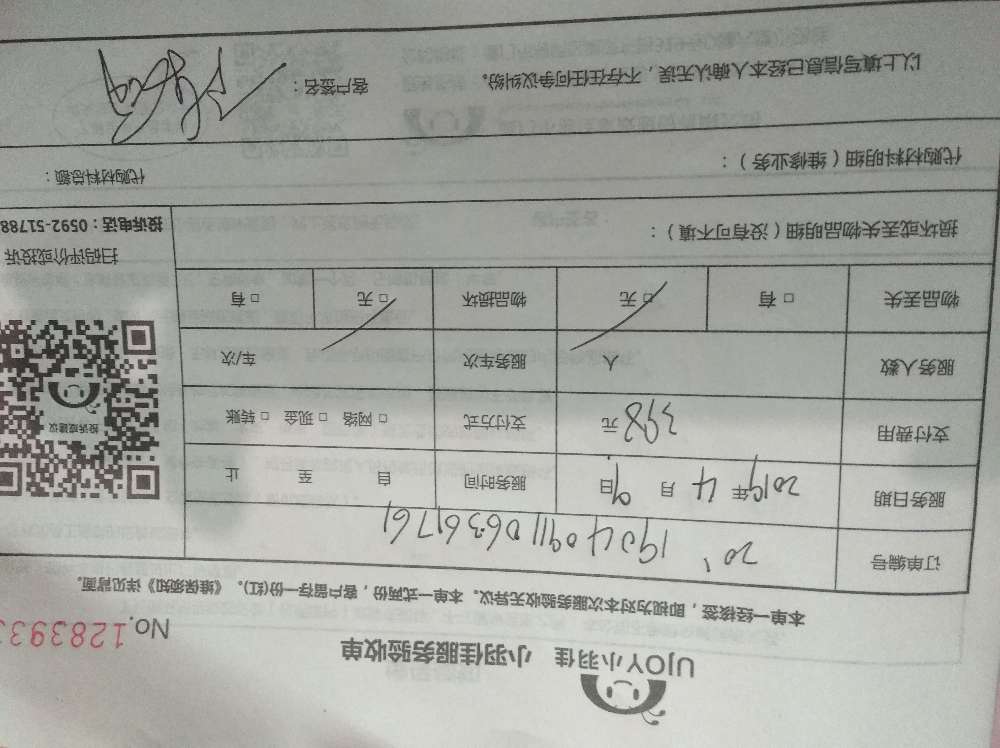 UJOY小羽佳 小羽佳服务验收单
No.128393
本单一经核签，即视为对本次服务验收无异议。本单一式两份，客户留存一份(红)。《维保须知》详见背面。
订单编号 20190409110636l761
服务日期 2019年4月9日 服务时间 自 至 止
支付费用 398元 支付方式 □网络 □现金 □转账
服务人数 人 服务车次 车/次
物品丢失 □有 □无 物品损坏 □无 □有
投诉或建议
扫码评价或投诉
投诉电话：0592-51788
损坏或丢失物品明细（没有可不填）：
代购材料明细（维修业务）： 代购材料总额：
以上填写信息已经本人确认无误，不存在任何争议纠纷。 客户签名：